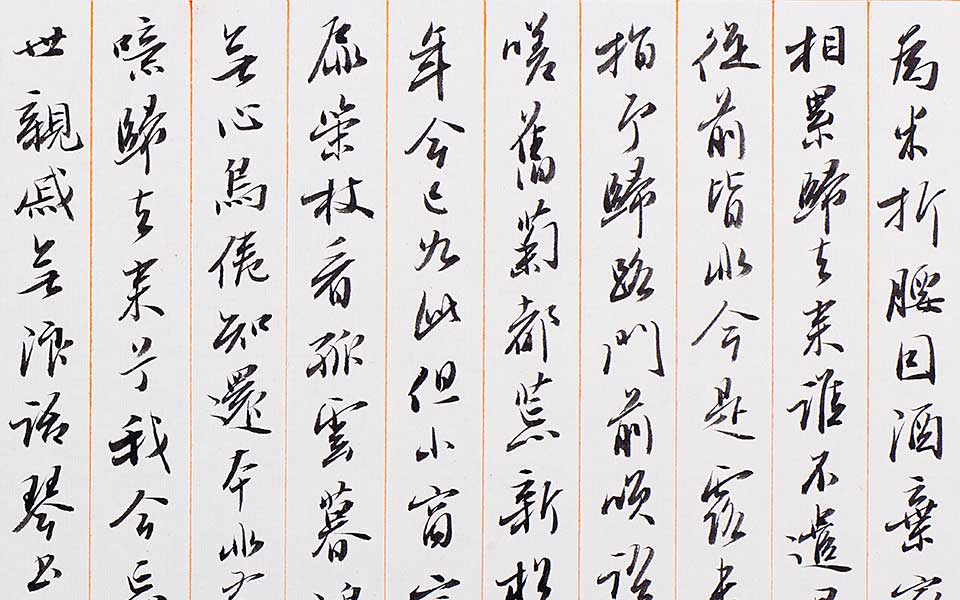 為米折腰因酒棄家
相累歸去来誰不遣
從前皆非今是露未
指予歸路門前咲語
嗟舊菊都荒新松
年今已如此但小窗容
扉策杖看孤雲暮鴻
無心鳥倦知還本非有
噫歸去来兮我今忘
世親戚無浪語琴書